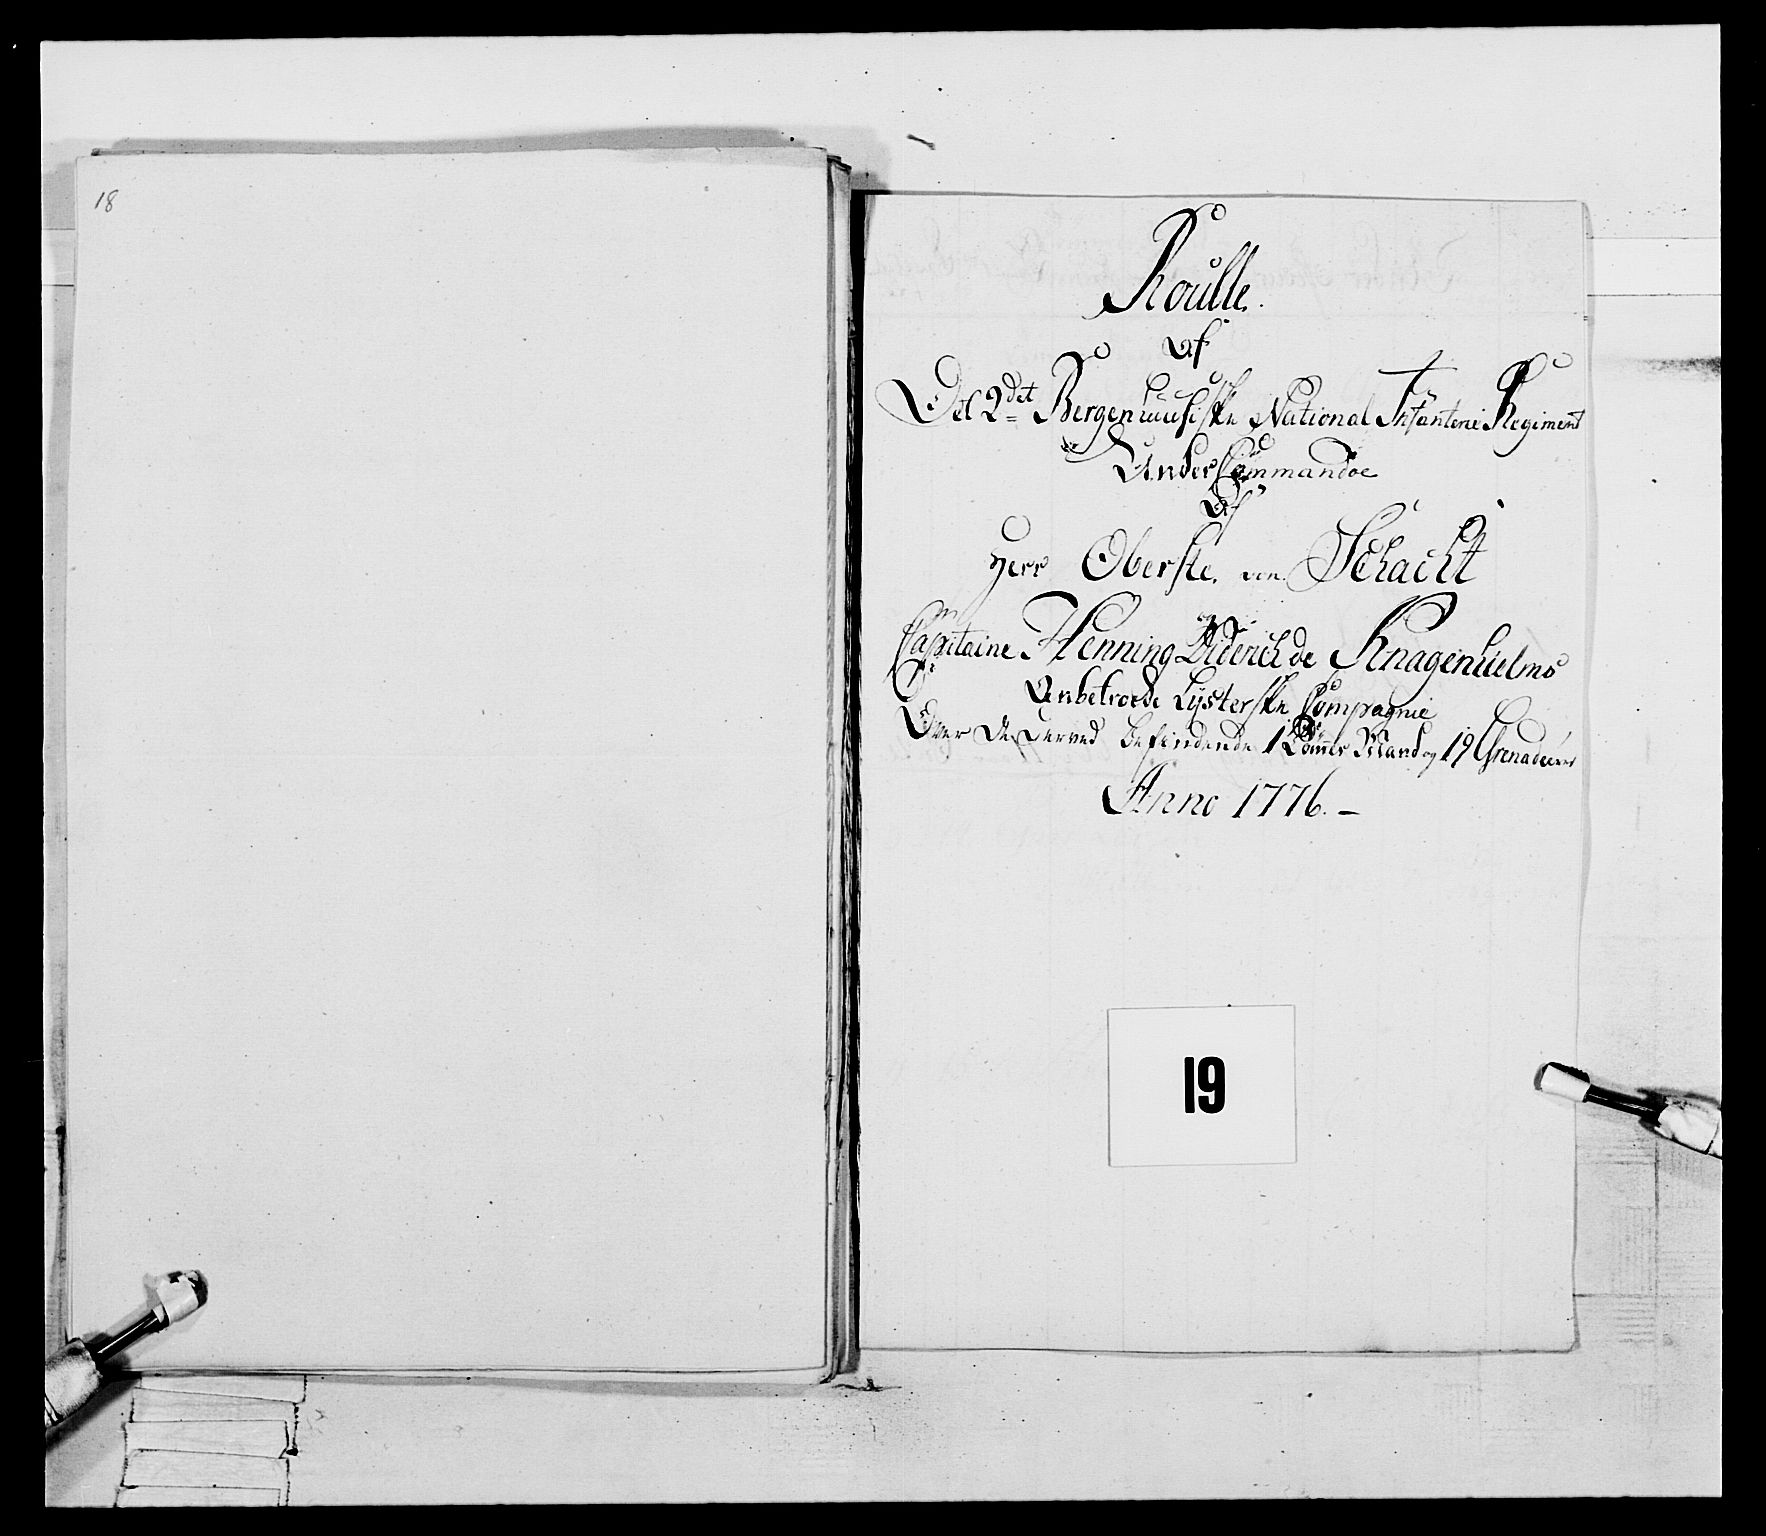 18
Roulle.
Af
Det 2det Bergenhusiske National Infanterie Regiment
Under Commandoe
Af
Herr Oberste von Schacht
Capitaine Henning Diderich de Knagenhielms
Anbetroede Lysterske Compagnie
Over De Derved befindende 1 Mand og 19 Grenadeerer
Anno 1776. –
19